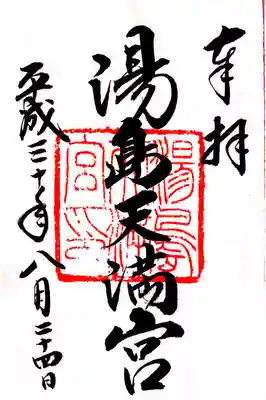 奉拝
湯島天満宮
平成三十年八月二十四日